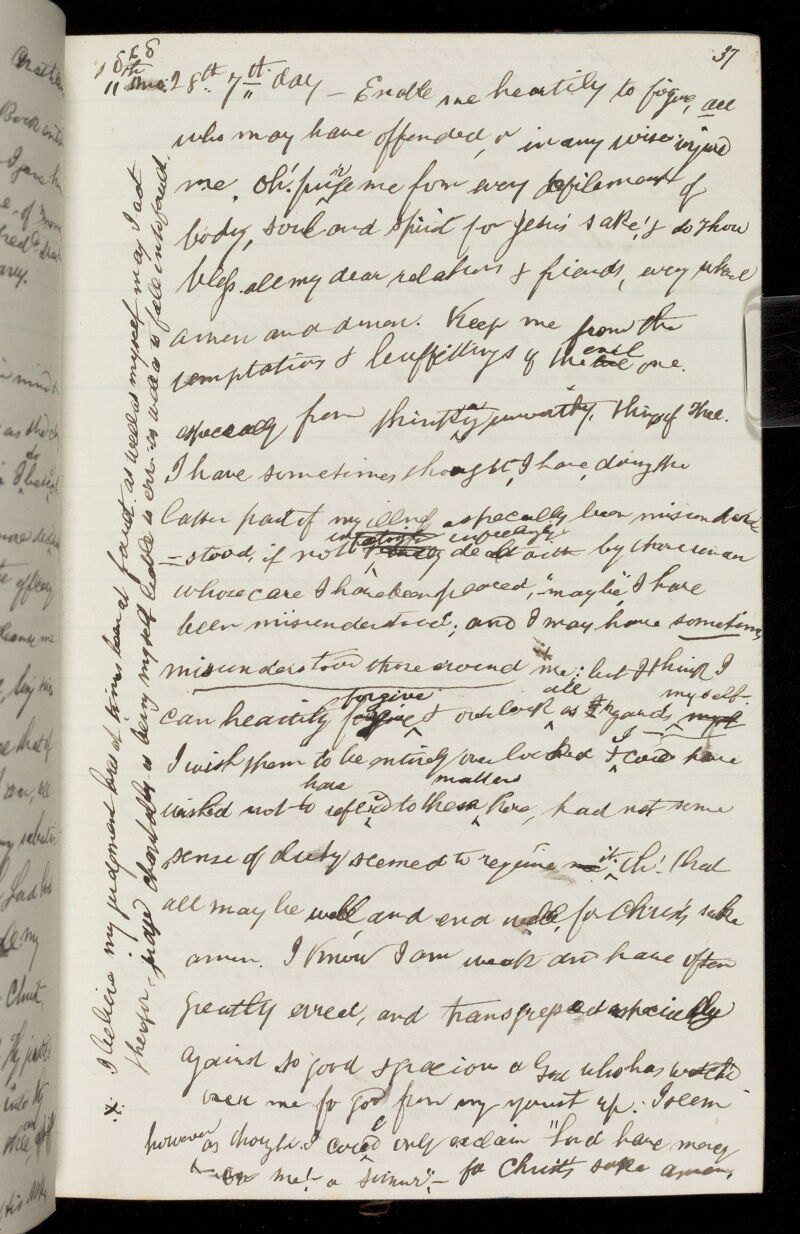 37
1868
11th mo. 28th 7th day – Enable me heartily to forgive, all
who may have offended, or in any wise injured
me. Oh! purge me from every defilement of
body, soul and spirit for Jesus' sake! & do Thou
bless all my dear relations & friends, every where
amen and amen. Keep me from the
temptations & buffettings of the evil one.
especially from thinking unworthy, things of Thee.
I have sometimes thought, I have, during the
latter part of my illness especially been misunder
-stood, if not unfeelingly dealt with by those under
whose care I have been placed, "may be", I have
been misunderstood; and I may have sometimes
misunderstood those around me; but I think I
can heartily forgive & overlook it all as regards myself.
I wish them to be entirely overlooked & I could have
wished not to have refer'd to these matters here, had not some
sense of duty seemed to require it. Oh! that
all may be well, and end well, for Christ's sake
amen. I know I am weak and have often
greatly erred, and transgressed especially
against so good & gracious a God who has watched
over me for good from my youth up. I seem
however as though I could only exclaim "Lord have mercy
on me! a sinner", – for Christ's sake amen.
x I believe my judgment has at times been at fault, as well as myself may I act
therefore, judge charitably as being myself liable to err as well as to fall into